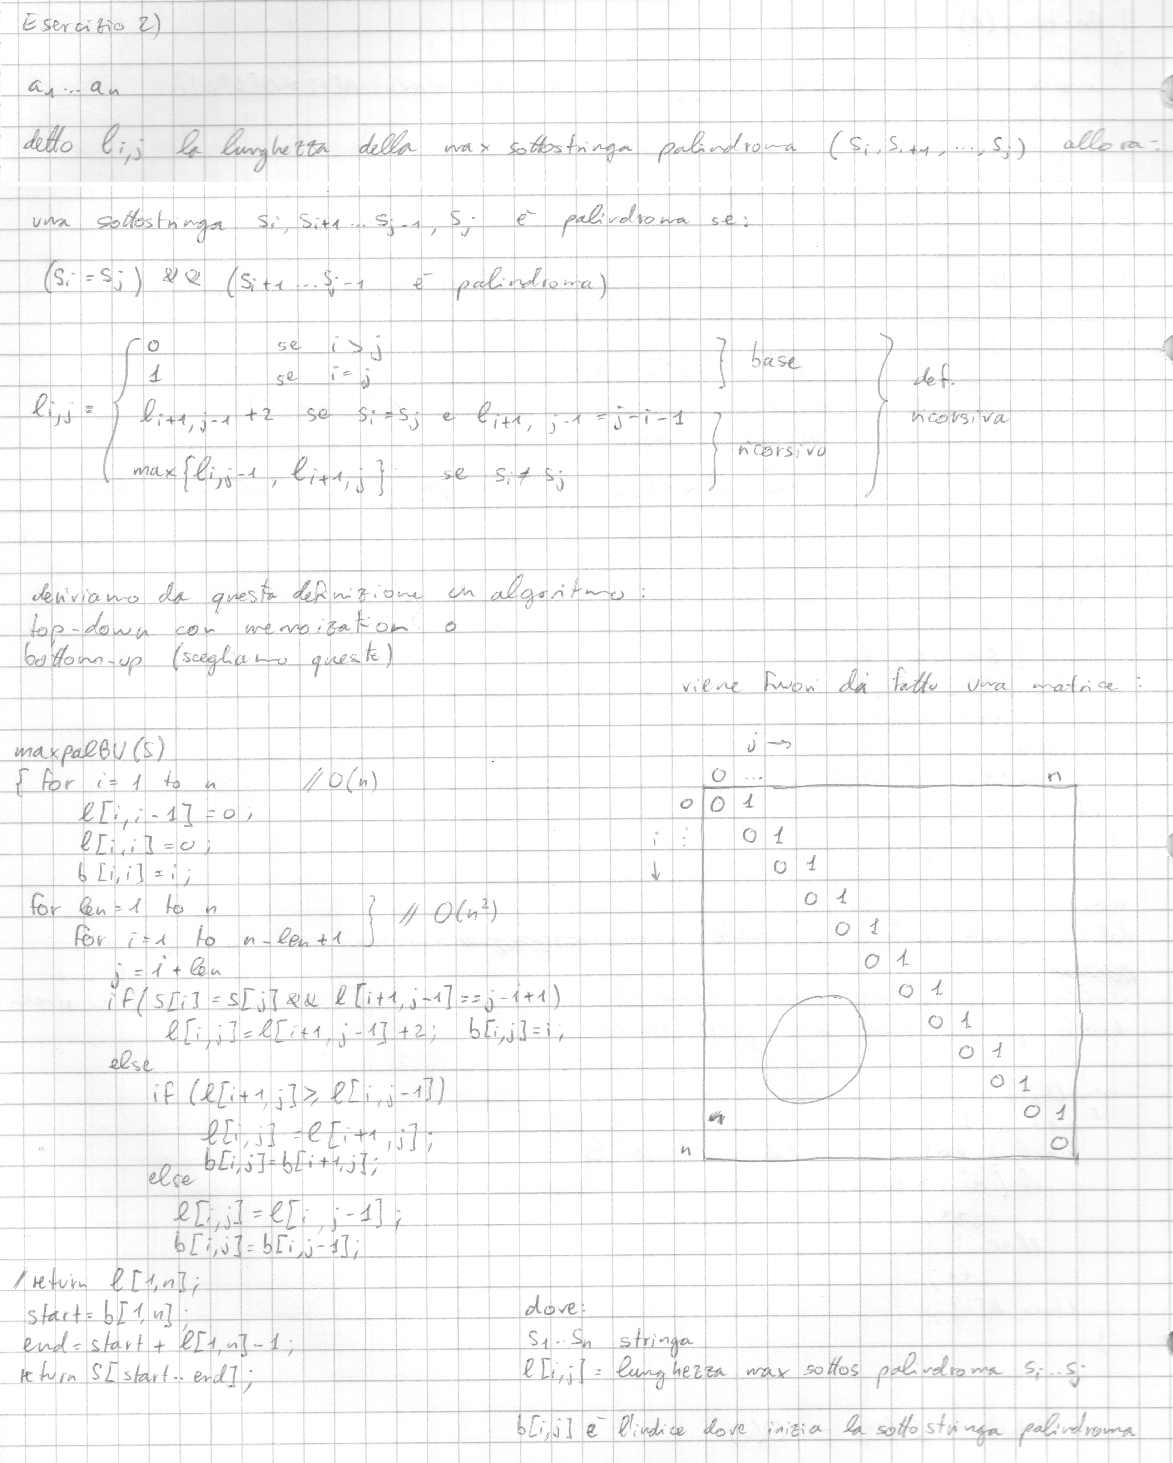 Esercizio 2)
a1 ... an
detto li,j la lunghezza della max sottostringa palindroma (si, si+1, ..., sj) allora:
una sottostringa si, si+1 ... sj-1, sj è palindroma se:
(si = sj) && (si+1 ... sj-1 è palindroma)
li,j = { 0 se i > j
1 se i = j } base
li+1, j-1 + 2 se si = sj e li+1, j-1 = j-i-1
max{li,j-1, li+1,j} se si ≠ sj } ricorsivo
} def. ricorsiva
deriviamo da questa definizione un algoritmo:
top-down con memoization o
bottom-up (scegliamo queste)
viene fuori da fatto una matrice:
maxpalBU(S)
{ for i = 1 to n // O(n)
l[i, i-1] = 0;
l[i,i] = 0;
b[i,i] = i;
for len = 1 to n
for i = 1 to n-len+1 } // O(n²)
j = i + len
if (s[i] = s[j] && l[i+1, j-1] == j-i+1)
l[i,j] = l[i+1, j-1] + 2; b[i,j] = i;
else
if (l[i+1, j] ≥ l[i, j-1])
l[i,j] = l[i+1, j];
b[i,j] = b[i+1,j];
else
l[i,j] = l[i, j-1];
b[i,j] = b[i,j-1];
/ return l[1,n];
start = b[1,n];
end = start + l[1,n] - 1;
return S[start..end];
j →
0 ... n
0 0 1
i ⋮ 0 1
↓ 0 1
0 1
0 1
0 1
0 1
0 1
0 1
0 1
0 1
n 0
dove:
s1 .. sn stringa
l[i,j] = lunghezza max sottos palindroma si .. sj
b[i,j] è l'indice dove inizia la sottostringa palindroma